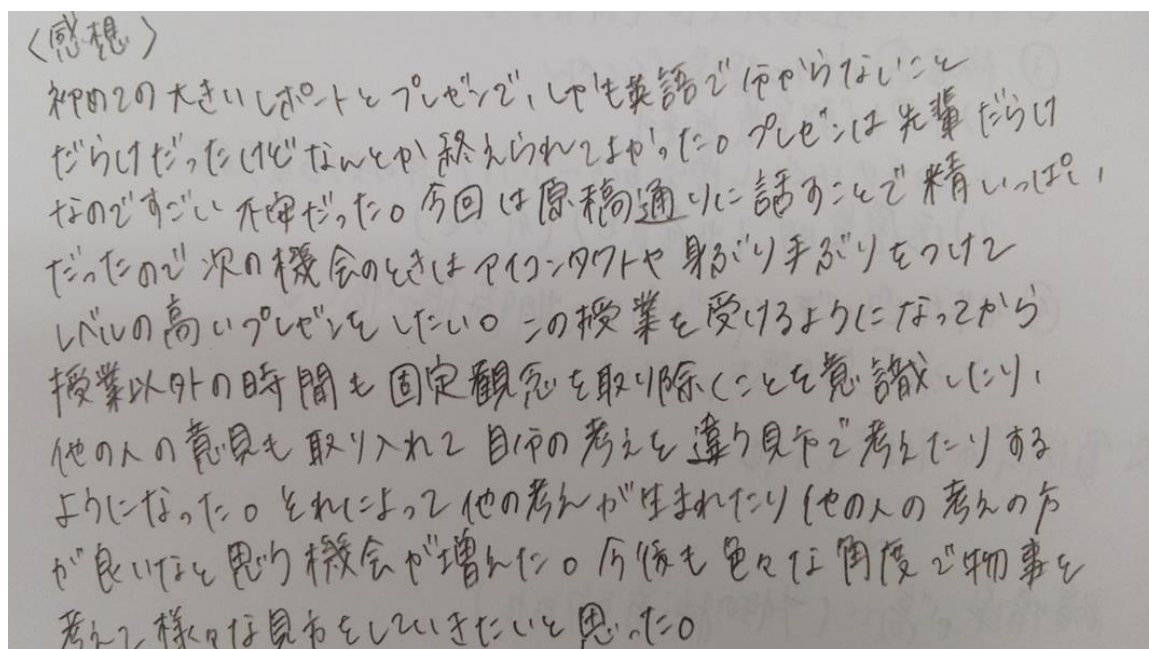 〈感想〉
初めての大きいレポートとプレゼンで、しかも英語で分からないこと
だらけだったけどなんとか終えられてよかった。プレゼンは先輩だらけ
なのですごい不安だった。今回は原稿通りに話すことで精いっぱい
だったので次の機会のときはアイコンタクトや身ぶり手ぶりをつけて
レベルの高いプレゼンをしたい。この授業を受けるようになってから
授業以外の時間も固定観念を取り除くことを意識したり、
他の人の意見も取り入れて自分の考えを違う見方で考えたりする
ようになった。それによって他の考えが生まれたり他の人の考えの方
が良いなと思う機会が増えた。今後も色々な角度で物事を
考えて様々な見方をしていきたいと思った。